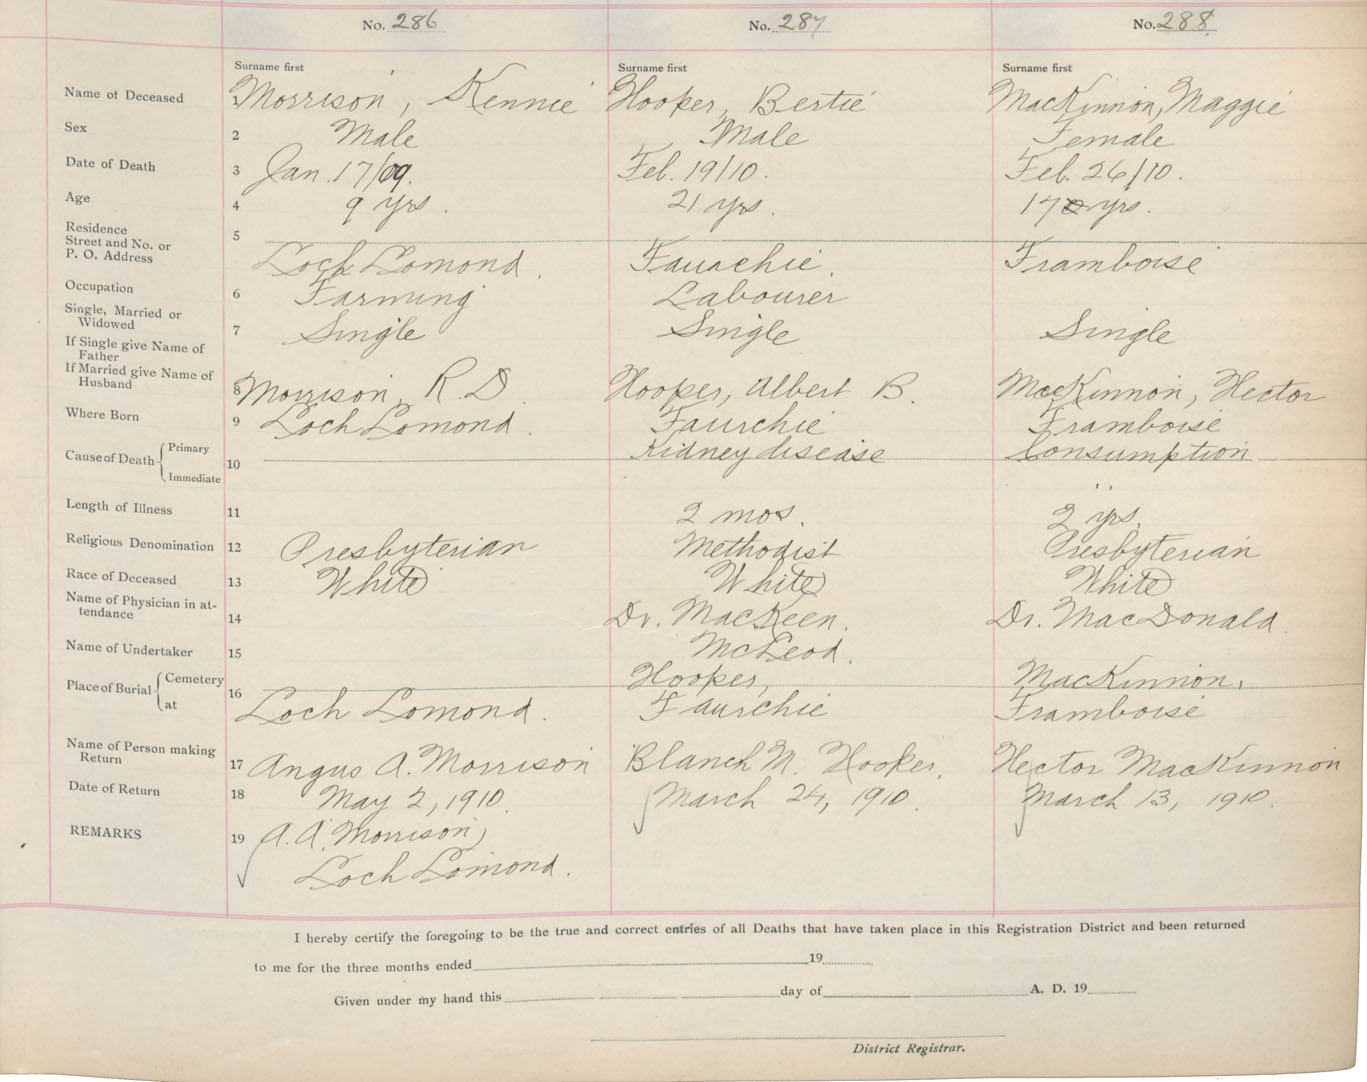 No. 286 No. 287 No. 288
Surname first Surname first Surname first
Name of Deceased 1 Morrison, Kennie Hooper, Bertie MacKinnon, Maggie
Sex 2 Male Male Female
Date of Death 3 Jan. 17/09. Feb. 19/10. Feb. 26/10.
Age 4 9 yrs. 21 yrs. 17 yrs.
Residence 5
Street and No. or
P. O. Address Loch Lomond. Fauachie. Framboise
Occupation 6 Farming Labourer
Single, Married or
Widowed 7 Single Single Single
If Single give Name of
Father
If Married give Name of
Husband 8 Morrison, R. D. Hooper, Albert B. MacKinnon, Hector
Where Born 9 Loch Lomond. Faurchie Framboise
Cause of Death Primary 10 Kidney disease Consumption
Immediate " "
Length of Illness 11 2 mos. 2 yrs.
Religious Denomination 12 Presbyterian Methodist Presbyterian
Race of Deceased 13 White White White
Name of Physician in at-
tendance 14 Dr. MacKeen. Dr. MacDonald.
Name of Undertaker 15 McLeod.
Place of Burial Cemetery 16 Hooper, MacKinnon,
at Loch Lomond. Faurchie Framboise
Name of Person making
Return 17 Angus A. Morrison Blanch M. Hooper. Hector MacKinnon
Date of Return 18 May 2, 1910. March 24, 1910. March 13, 1910.
REMARKS 19 A. A. Morrison,
Loch Lomond.
I hereby certify the foregoing to be the true and correct entries of all Deaths that have taken place in this Registration District and been returned
to me for the three months ended 19
Given under my hand this day of A. D. 19
District Registrar.